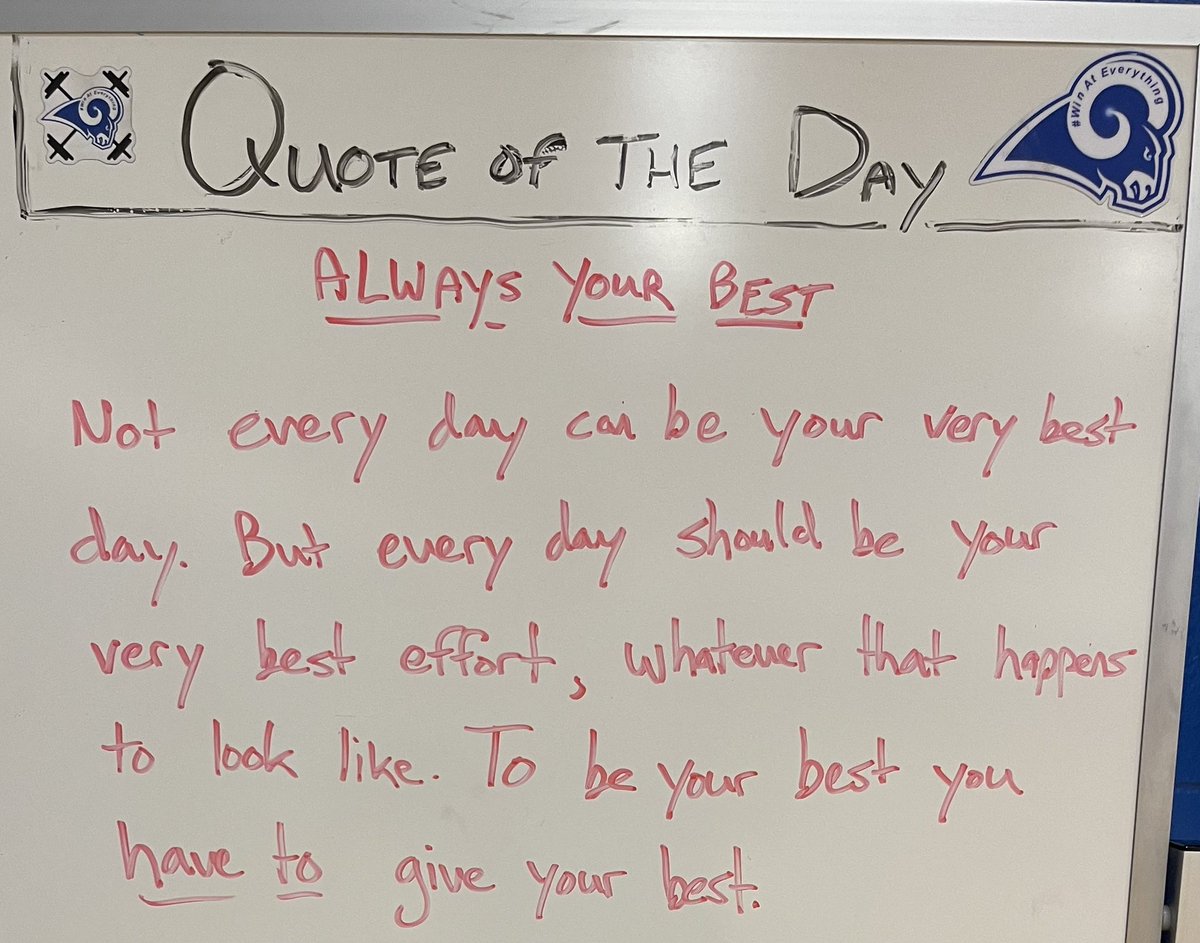 QUOTE OF THE DAY
#Win At Everything
ALWAYS YOUR BEST
Not every day can be your very best
day. But every day should be your
very best effort, whatever that happens
to look like. To be your best you
have to give your best.